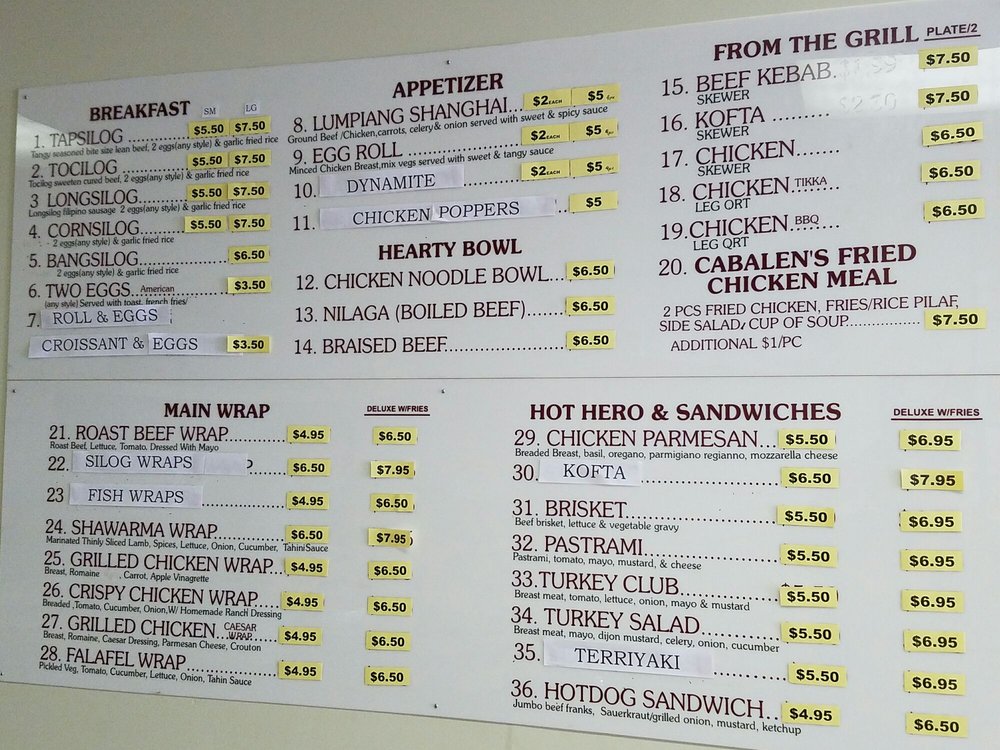 BREAKFAST SM LG
1. TAPSILOG ............ $5.50 $7.50
Tangy seasoned bite size lean beef, 2 eggs(any style) & garlic fried rice
2. TOCILOG ............ $5.50 $7.50
Tocilog sweeten cured beef, 2 eggs(any style) & garlic fried rice
3 LONGSILOG ......... $5.50 $7.50
Longsilog filipino sausage 2 eggs(any style) & garlic fried rice
4. CORNSILOG......... $5.50 $7.50
- 2 eggs(any style) & garlic fried rice
5. BANGSILOG............... $6.50
2 eggs(any style) & garlic fried rice
6. TWO EGGS.. American ......... $3.50
(any style) Served with toast, french fries/
7. ROLL & EGGS
CROISSANT & EGGS $3.50
APPETIZER
8. LUMPIANG SHANGHAI... $2 EACH $5
Ground Beef /Chicken,carrots, celery& onion served with sweet & spicy sauce
9. EGG ROLL .................. $2 EACH $5
Minced Chicken Breast,mix vegs served with sweet & tangy sauce
10. DYNAMITE ......... $2 EACH $5
11. CHICKEN POPPERS .. $5
HEARTY BOWL
12. CHICKEN NOODLE BOWL... $6.50
13. NILAGA (BOILED BEEF)....... $6.50
14. BRAISED BEEF...................... $6.50
FROM THE GRILL PLATE/2
15. BEEF KEBAB. $7.50
SKEWER
16. KOFTA ......... $7.50
SKEWER
17. CHICKEN....... $6.50
SKEWER
18. CHICKEN TIKKA $6.50
LEG ORT
19.CHICKEN BBQ $6.50
LEG QRT
20. CABALEN'S FRIED
CHICKEN MEAL
2 PCS FRIED CHICKEN, FRIES/RICE PILAF,
SIDE SALAD, CUP OF SOUP................ $7.50
ADDITIONAL $1/PC
MAIN WRAP DELUXE W/FRIES
21. ROAST BEEF WRAP......... $4.95 $6.50
Roast Beef, Lettuce, Tomato, Dressed With Mayo
22. SILOG WRAPS P ...... $6.50 $7.95
23 FISH WRAPS ............ $4.95 $6.50
24. SHAWARMA WRAP............ $6.50 $7.95
Marinated Thinly Sliced Lamb, Spices, Lettuce, Onion, Cucumber, Tahini Sauce
25. GRILLED CHICKEN WRAP... $4.95 $6.50
Breast, Romaine , Carrot, Apple Vinagrette
26. CRISPY CHICKEN WRAP.... $4.95 $6.50
Breaded ,Tomato, Cucumber, Onion,W/ Homemade Ranch Dressing
27. GRILLED CHICKEN... CAESAR WRAP $4.95 $6.50
Breast, Romaine, Caesar Dressing, Parmesan Cheese, Crouton
28. FALAFEL WRAP............... $4.95 $6.50
Pickled Veg, Tomato, Cucumber, Lettuce, Onion, Tahin Sauce
HOT HERO & SANDWICHES DELUXE W/FRIES
29. CHICKEN PARMESAN... $5.50 $6.95
Breaded Breast, basil, oregano, parmigiano regianno, mozzarella cheese
30. KOFTA .................. $6.50 $7.95
31. BRISKET..................... $5.50 $6.95
Beef brisket, lettuce & vegetable gravy
32. PASTRAMI.................. $5.50 $6.95
Pastrami, tomato, mayo, mustard, & cheese
33.TURKEY CLUB............. $5.50 $6.95
Breast meat, tomato, lettuce, onion, mayo & mustard
34. TURKEY SALAD.......... $5.50 $6.95
Breast meat, mayo, dijon mustard, celery, onion, cucumber
35. TERRIYAKI ......... $5.50 $6.95
36. HOTDOG SANDWICH.. $4.95 $6.50
Jumbo beef franks, Sauerkraut/grilled onion, mustard, ketchup